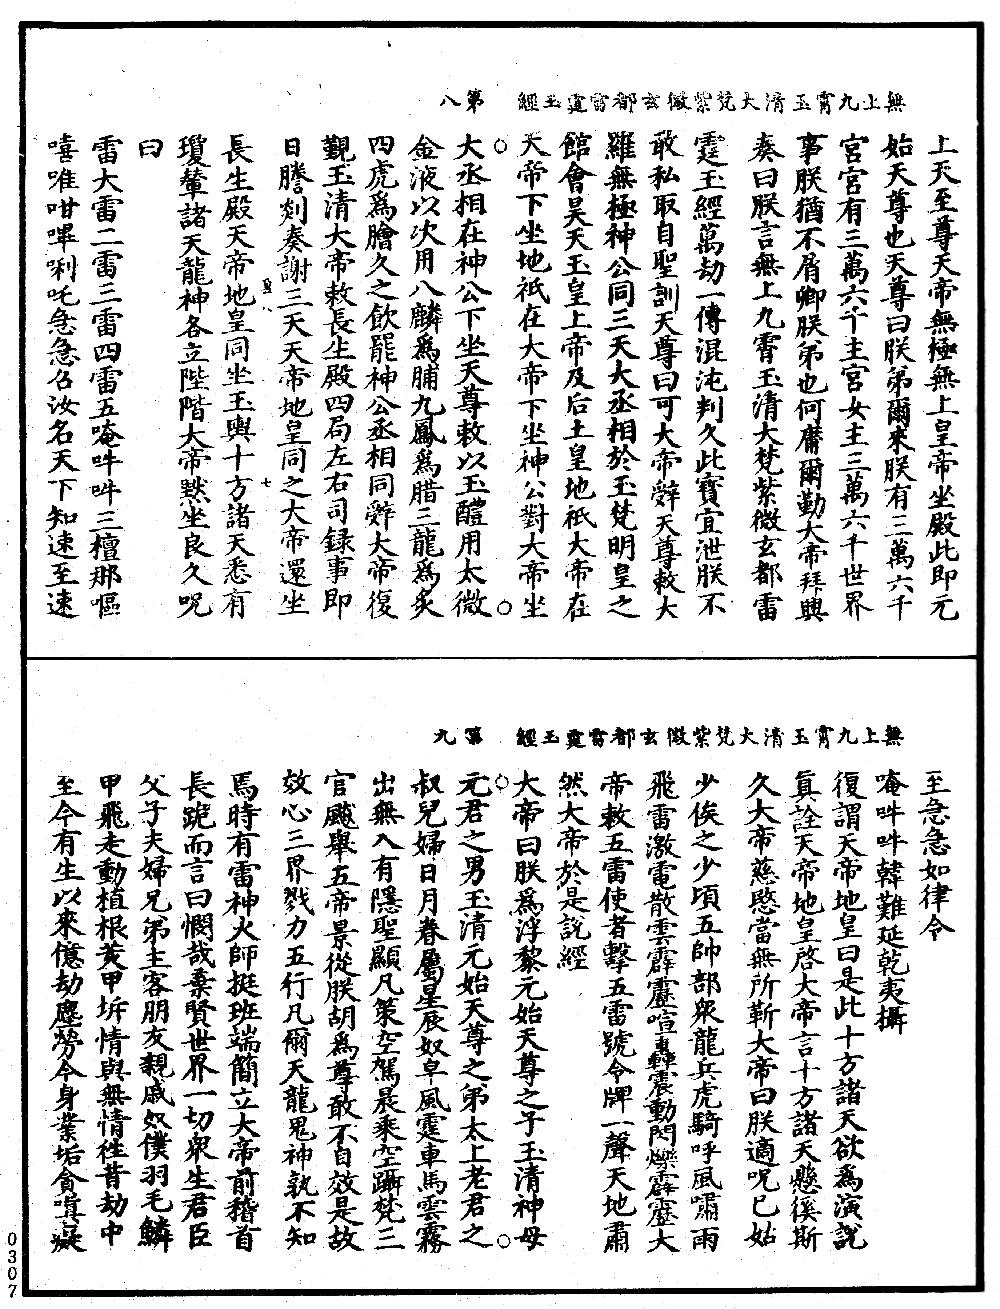 無上九霄玉清大梵紫微玄都雷霆玉經　第八
上天至尊天帝無極無上皇帝坐殿此即元
始天尊也天尊曰朕弟爾來朕有三萬六千
宮宮有三萬六千主宮女主三萬六千世界
事朕猶不屑卿朕弟也何庸爾勤大帝拜興
奏曰朕言無上九霄玉清大梵紫微玄都雷
霆玉經萬劫一傳混沌判久此寶宜泄朕不
敢私取自聖訓天尊曰可大帝辭天尊敕大
羅無極神公同三天大丞相於玉梵明皇之
館會昊天玉皇上帝及后土皇地祇大帝在
天帝下坐地祇在大帝下坐神公對大帝坐
大丞相在神公下坐天尊敕以玉醴用太微
金液以次用八麟為脯九鳳為腊三龍為炙
四虎為膾久之飲罷神公丞相同辭大帝復
覲玉清大帝敕長生殿四局左右司錄事即
日謄剡奏謝三天天帝地皇同之大帝還坐
長生殿天帝地皇同坐玉輿十方諸天悉有
瓊輦諸天龍神各立陛階大帝默坐良久呪
曰
雷大雷二雷三雷四雷五唵吽吽三檀那嘔
嘻唯呬嗶唎吒急急名汝名天下知速至速
無上九霄玉清大梵紫微玄都雷霆玉經　第九
至急急如律令
唵吽吽韓難延乾夷攝
復謂天帝地皇曰是此十方諸天欲為演說
真詮天帝地皇啓大帝言十方諸天懸徯斯
久大帝慈愍當無所靳大帝曰朕適呪已姑
少俟之少頃五帥部衆龍兵虎騎呼風嘯雨
飛雷激電散雲霹靂喧轟震動閃爍霹靂大
帝敕五雷使者擊五雷號令牌一聲天地肅
然大帝於是說經
大帝曰朕為浮黎元始天尊之子玉清神母
元君之男玉清元始天尊之弟太上老君之
叔兒婦日月眷屬星辰奴皁風霆車馬雲霧
出無入有隱聖顯凡策空駕晨乘空躡梵三
官飈舉五帝景從朕胡為尊敢不自效是故
效心三界戮力五行凡爾天龍鬼神孰不知
焉時有雷神火師挺班端簡立大帝前稽首
長跪而言曰憫哉羣賢世界一切衆生君臣
父子夫婦兄弟主客朋友親戚奴僕羽毛鱗
甲飛走動植根荄甲坼情與無情徃昔劫中
至今有生以來億劫塵勞今身業垢貪嗔癡
0307